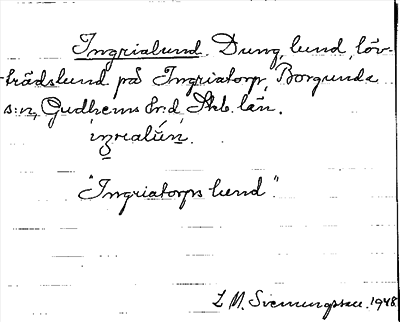 Ingrialund. Dung, lund, löv-
trädslund på Ingriatorp, Borgunda
s:n, Gudhems hr:d, Skb. län.
iŋrialún.
"Ingriatorps lund".
1948